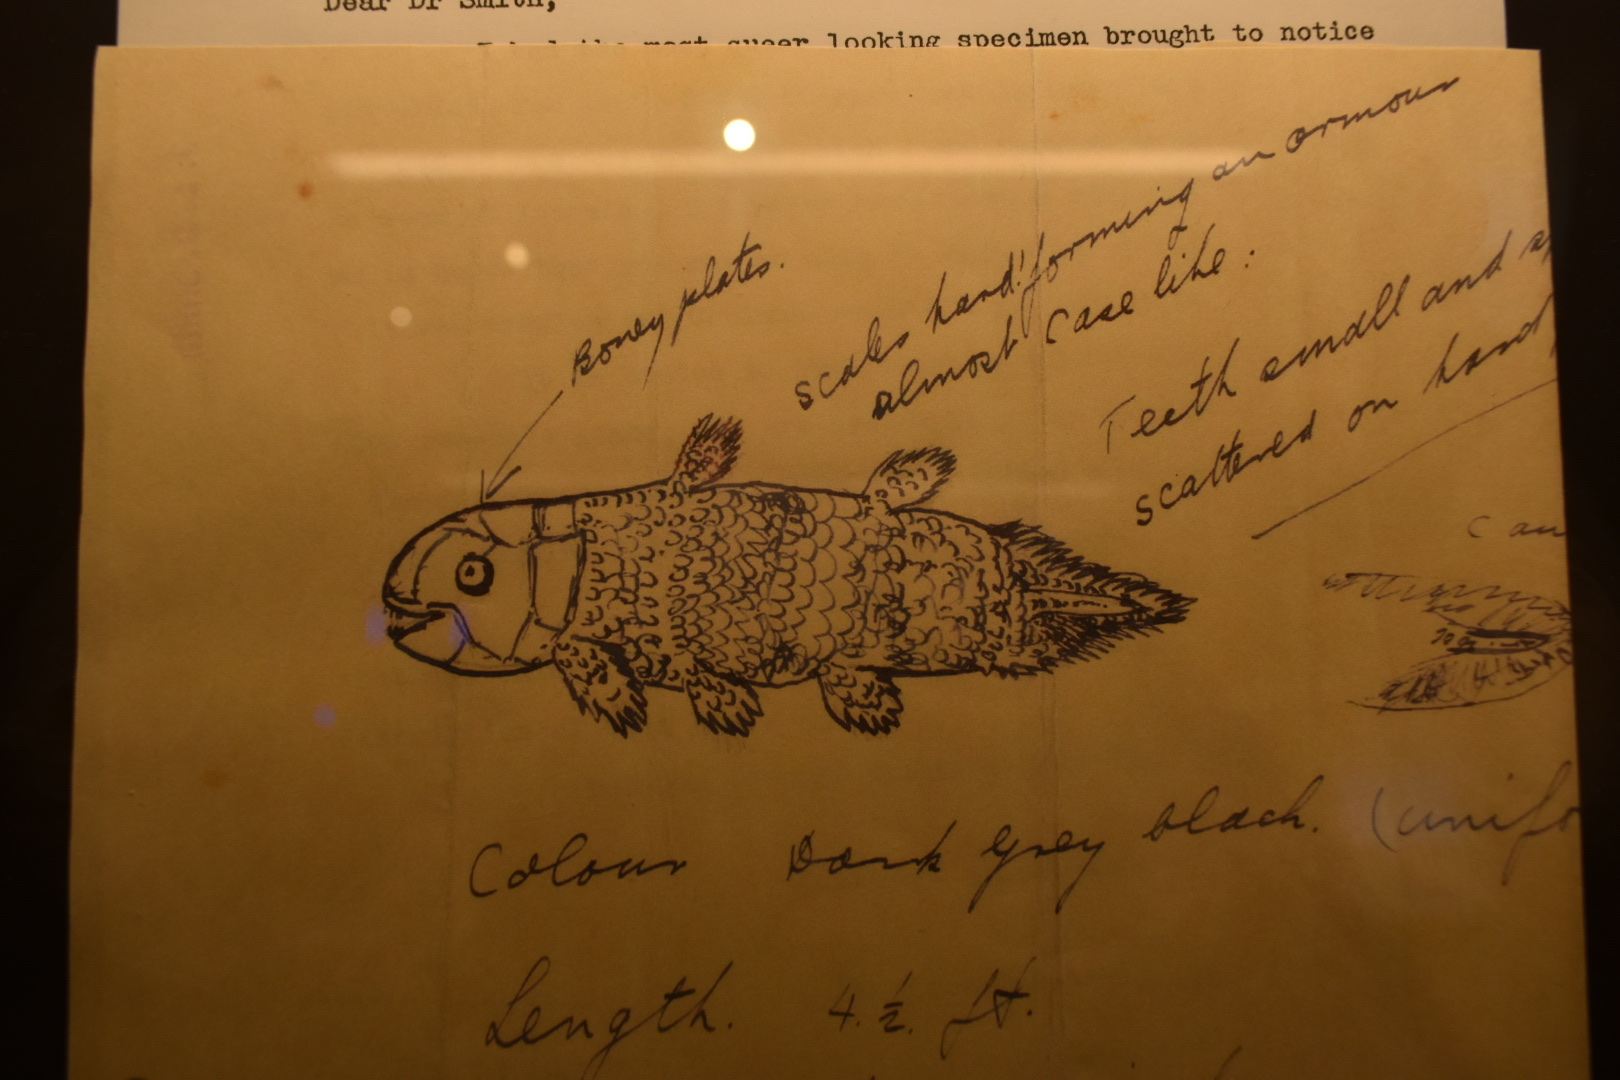 Dear Dr Smith,
the most queer looking specimen brought to notice
Boney plates.
scales hard! forming an ormour
almost case like:
Teeth small and
scattered on hard
Colour Dark grey black. (unifo
Length. 4.½. ft.